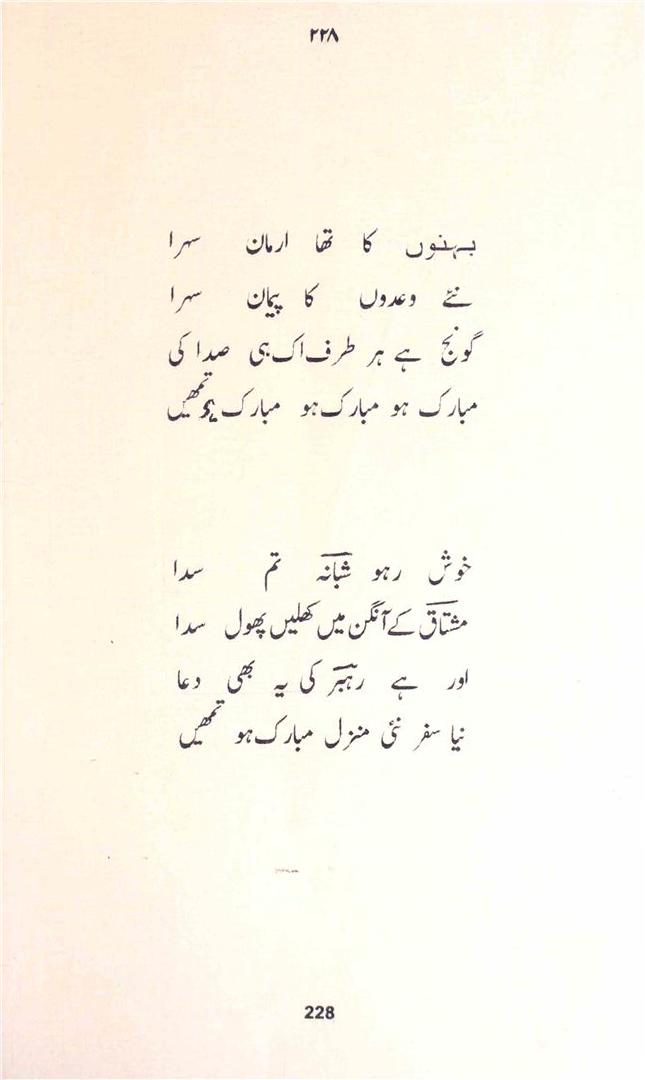 ۲۲۸
بہنوں کا تھا ارمان سہرا
نئے وعدوں کا پیمان سہرا
گونج ہے ہر طرف اک ہی صدا کی
مبارک ہو مبارک ہو مبارک ہو تمھیں
خوش رہو شبانہ تم سدا
مشتاق کے آنگن میں کھلیں پھول سدا
اور ہے رہبر کی یہ بھی دعا
نیا سفر نئی منزل مبارک ہو تمھیں
228